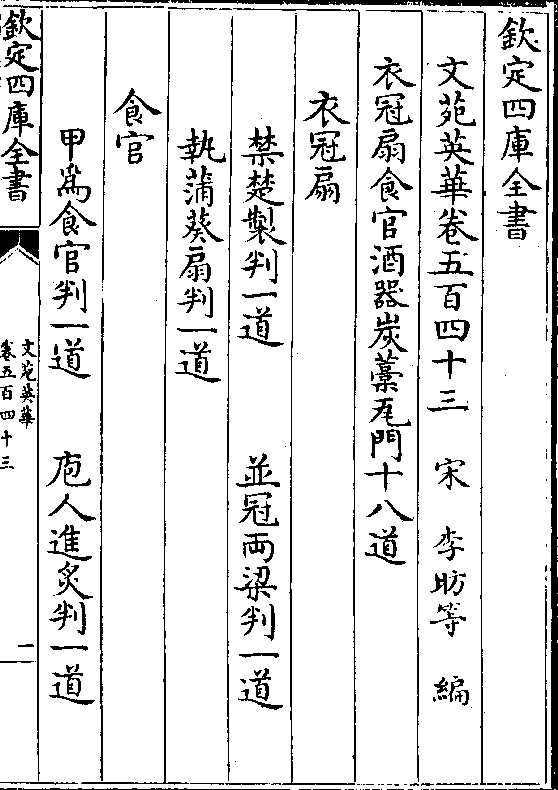 欽定四庫全書
文苑英華卷五百四十三 宋 李昉等 編
衣冠扇食官酒器炭藁瓦門十八道
衣冠扇
禁楚製判一道 並冠兩梁判一道
執蒲葵扇判一道
食官
甲為食官判一道 庖人進炙判一道
欽定四庫全書
文苑英華
卷五百四十三
一